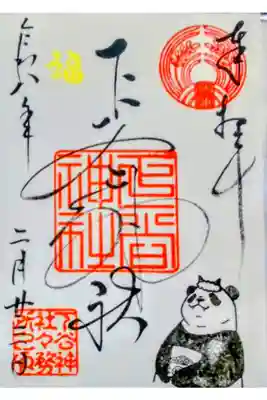 奉拝
下谷神社
下谷神社
福
令和八年
二月廿三日
下谷神
社々務
所印